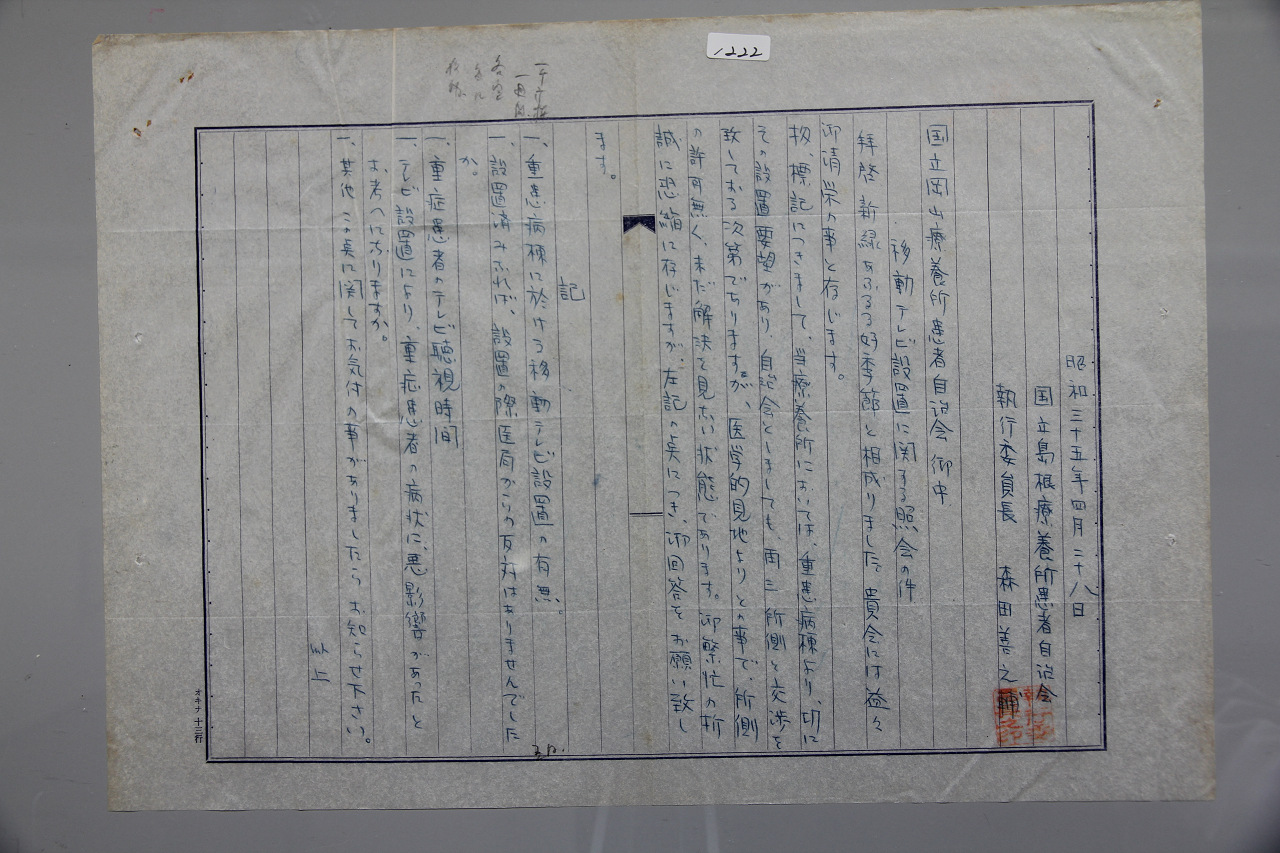 1222
昭和三十五年四月二十八日
国立島根療養所患者自治会
執行委員長 森田善之輔
国立岡山療養所患者自治会 御中
移動テレビ設置に関する照会の件
拝啓 新緑あふるる好季節と相成りました。貴会には益々
御清栄の事と存じます。
扨、標記につきまして、当療養所においては、重患病棟より、切に
その設置要望があり、自治会としましても、再三 所側と交渉を
致しておる次第でありますが、医学的見地よりとの事で、所側
の許可無く、未だ解決を見ない状態であります。御繁忙の折
誠に恐縮に存じますが、左記の点につき、御回答をお願い致し
ます。
記
一、重患病棟に於ける移動テレビ設置の有無。
一、設置済みなれば、設置の際医局からの反対はありませんでした
か。
一、重症患者のテレビ聴視時間
一、テレビ設置により、重症患者の病状に、悪影響があったと
お考へになりますか。
一、其他この点に関してお気付の事がありましたらお知らせ下さい。
以上
オキナ 十三行